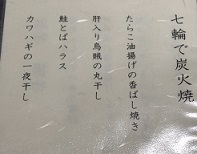 七輪で炭火焼
たらこ油揚げの香ばし焼き
肝入り烏賊の丸干し
鮭とばハラス
カワハギの一夜干し